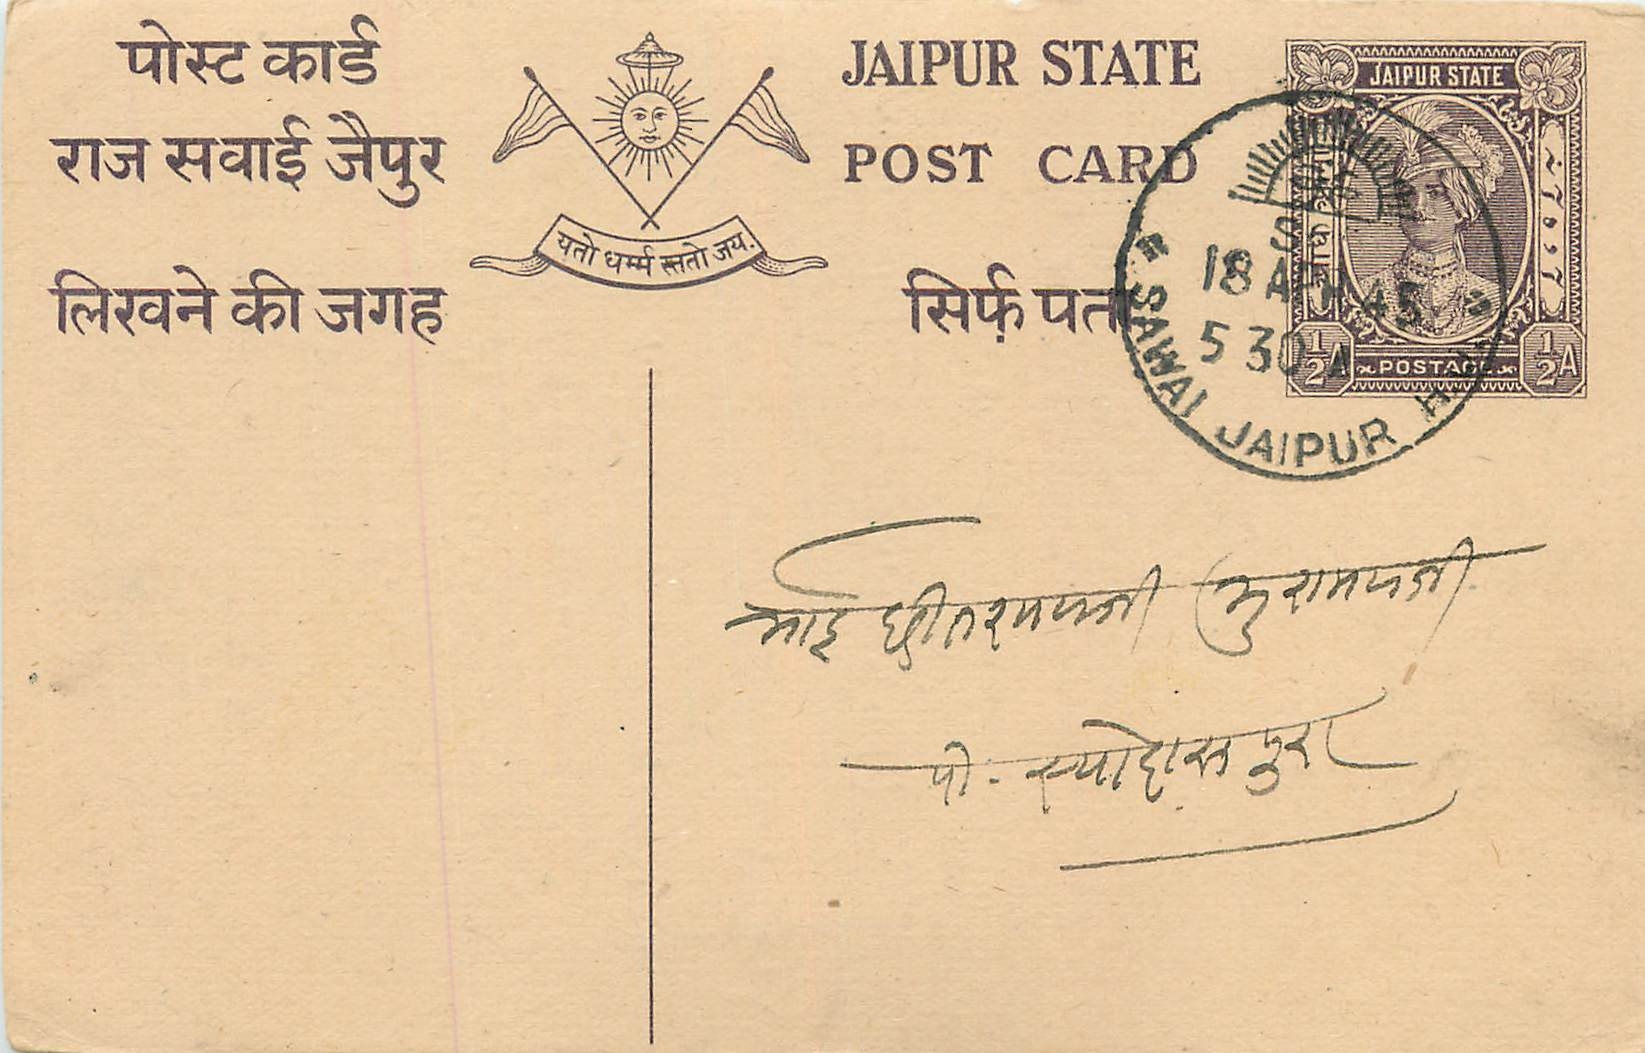 पोस्ट कार्ड
राज सवाई जैपुर
लिखने की जगह
यतो धर्म्म स्ततो जय.
JAIPUR STATE
POST CARD
सिर्फ़ पता
JAIPUR STATE
POSTAGE
½A ½A
18 APR 45
5 30
SAWAI JAIPUR
भाई
पो. स्योदासपुरा